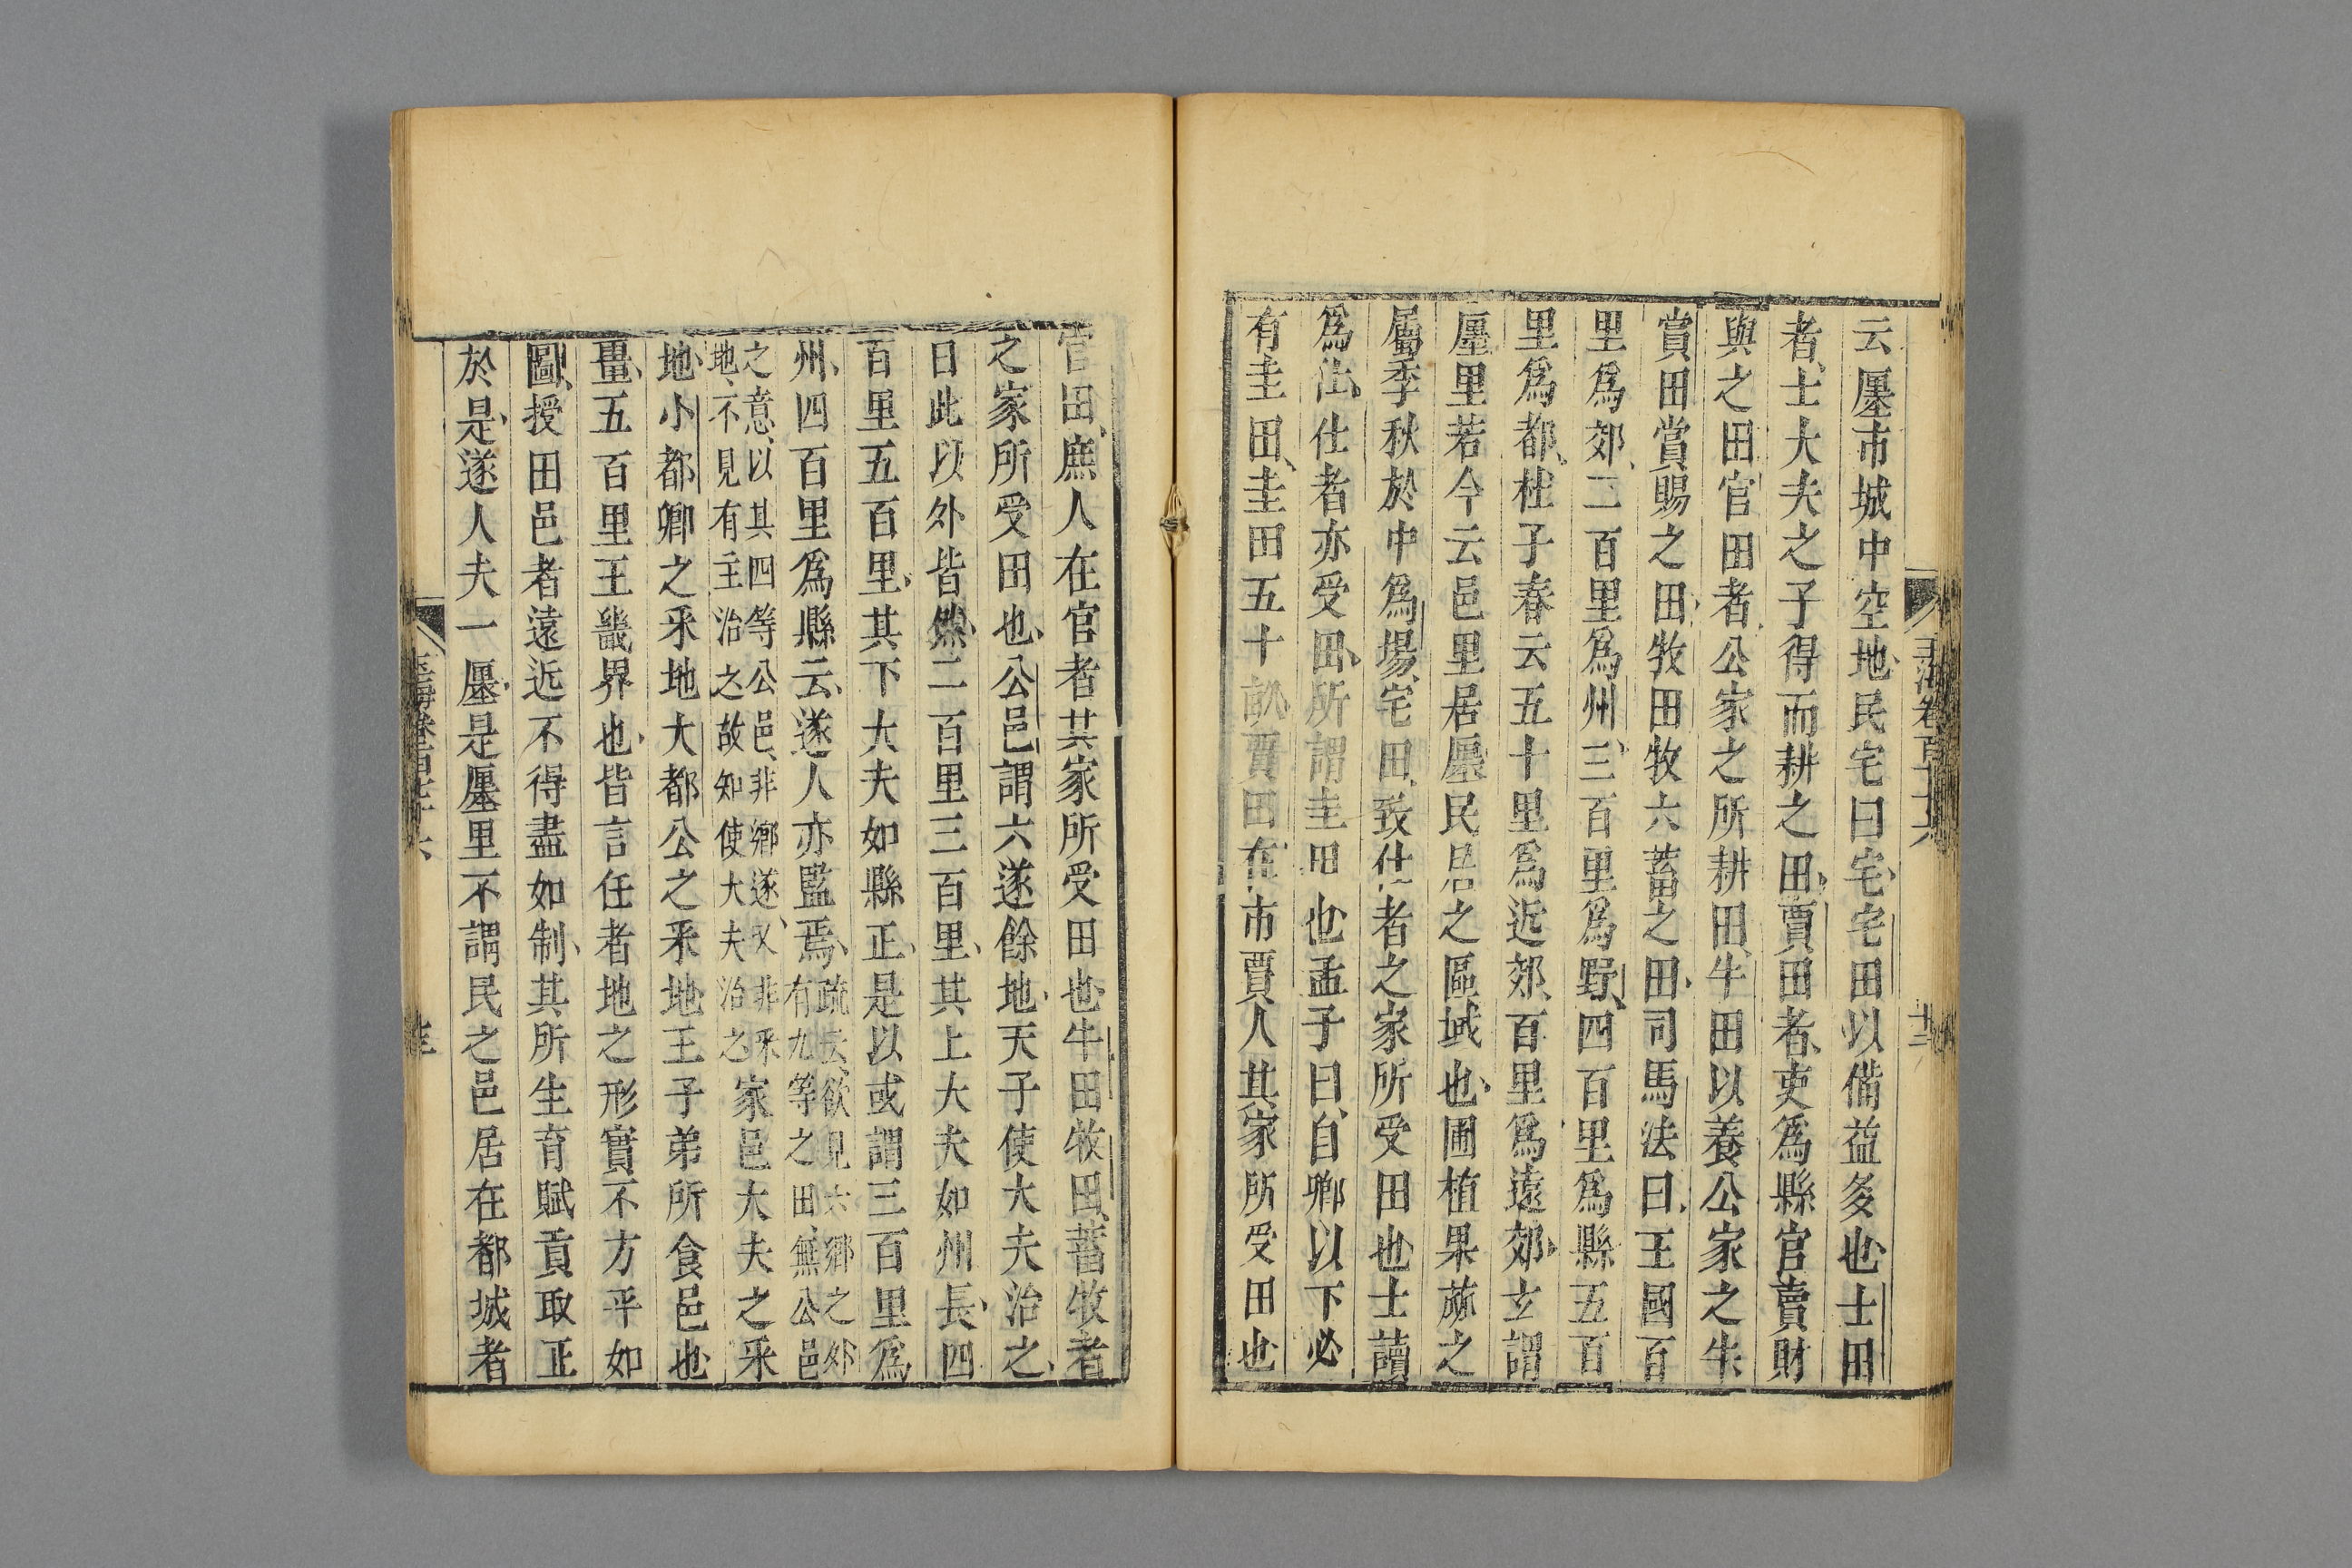 云廛市城中空地民宅曰宅宅田以備益多也士田
者士大夫之子得而耕之田賈田者吏爲縣官賣財
與之田官田者公家之所耕田牛田以養公家之牛
賞田賞賜之田牧田牧六畜之田司馬法曰王國百
里爲郊二百里爲州三百里爲野四百里爲縣五百
里爲都杜子春云五十里爲近郊百里爲遠郊玄謂
廛里若今云邑里居廛民居之區域也圃植果蓏之
屬季秋於中爲場宅田致仕者之家所受田也士讀
爲仕仕者亦受田所謂圭田也孟子曰自卿以下必
有圭田圭田五十畝賈田在市賈人其家所受田也
官田庶人在官者其家所受田也牛田牧田畜牧者
之家所受田也公邑謂六遂餘地天子使大夫治之
曰此以外皆然二百里三百里其上大夫如州長四
百里五百里其下大夫如縣正是以或謂三百里爲
州四百里爲縣云遂人亦監焉疏云欲見六鄉之外有九等之田無公邑
之意以其四等公邑非鄉遂又非采地不見有主治之故知使大夫治之家邑大夫之采
地小都卿之采地大都公之采地王子弟所食邑也
畺五百里王畿界也皆言任者地之形實不方平如
圖授田邑者遠近不得盡如制其所生育賦貢取正
於是遂人夫一廛是廛里不謂民之邑居在都城者